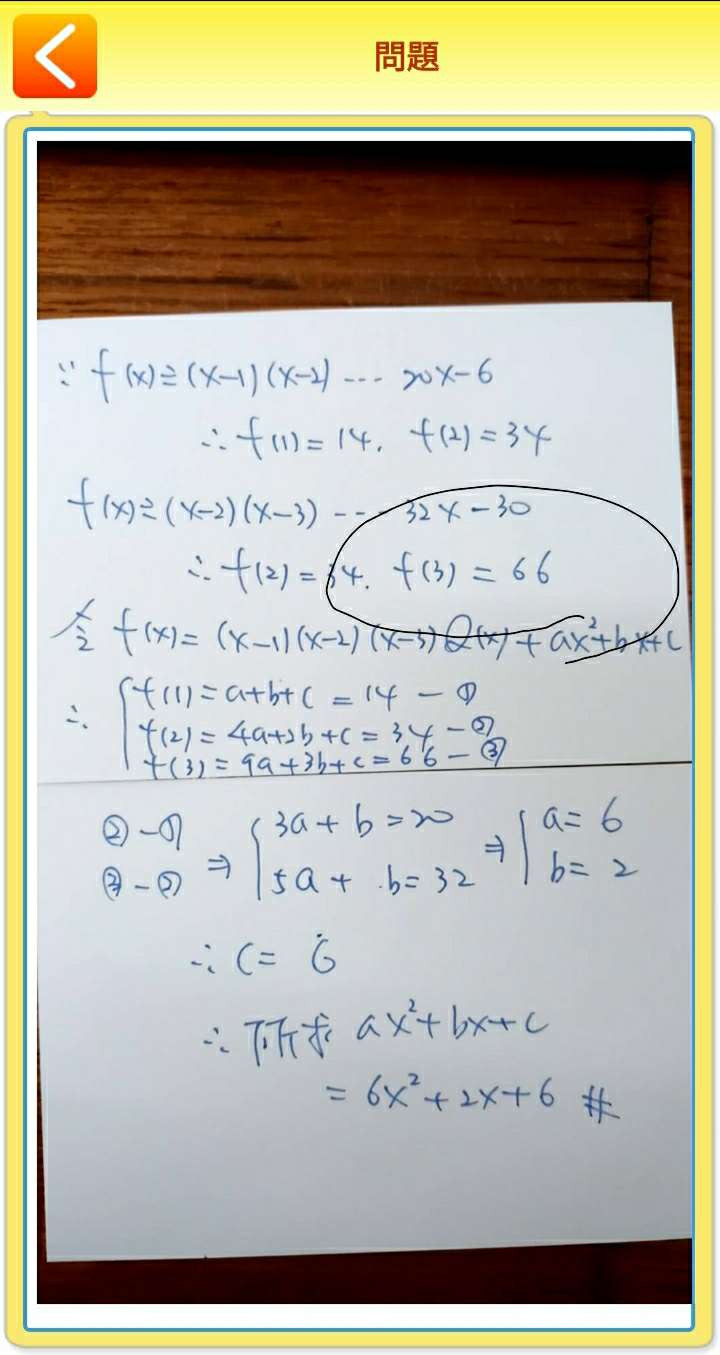 問題
∵ f(x)÷(x-1)(x-2) --- 20x-6
∴ f(1)=14. f(2)=34
f(x)÷(x-2)(x-3) --- 32x-30
∴ f(2)=34. f(3)=66
令 f(x)=(x-1)(x-2)(x-3)Q(x)+ax²+bx+c
∴ { f(1)=a+b+c=14 - ①
f(2)=4a+2b+c=34 - ②
f(3)=9a+3b+c=66 - ③
②-① ⇒ { 3a+b=20 ⇒ { a=6
③-② 5a+b=32 b=2
∴ c=6
∴ 所求 ax²+bx+c
=6x²+2x+6 #